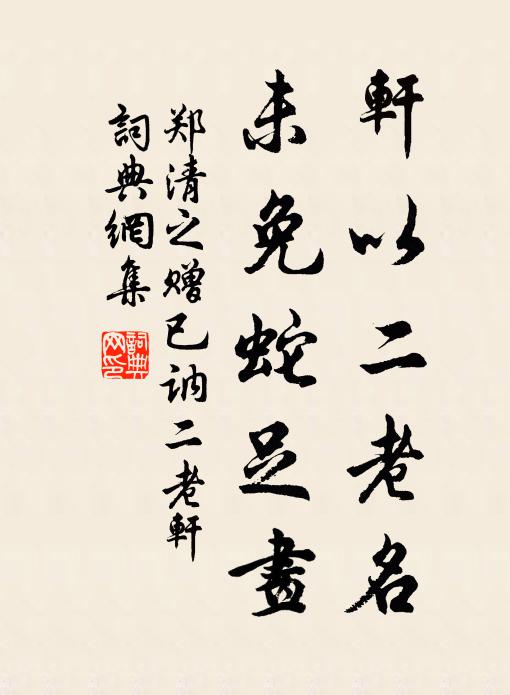 軒以二老名
未免蛇足畫
郑清之赠已訥二老軒
詞典網集
詞典网印